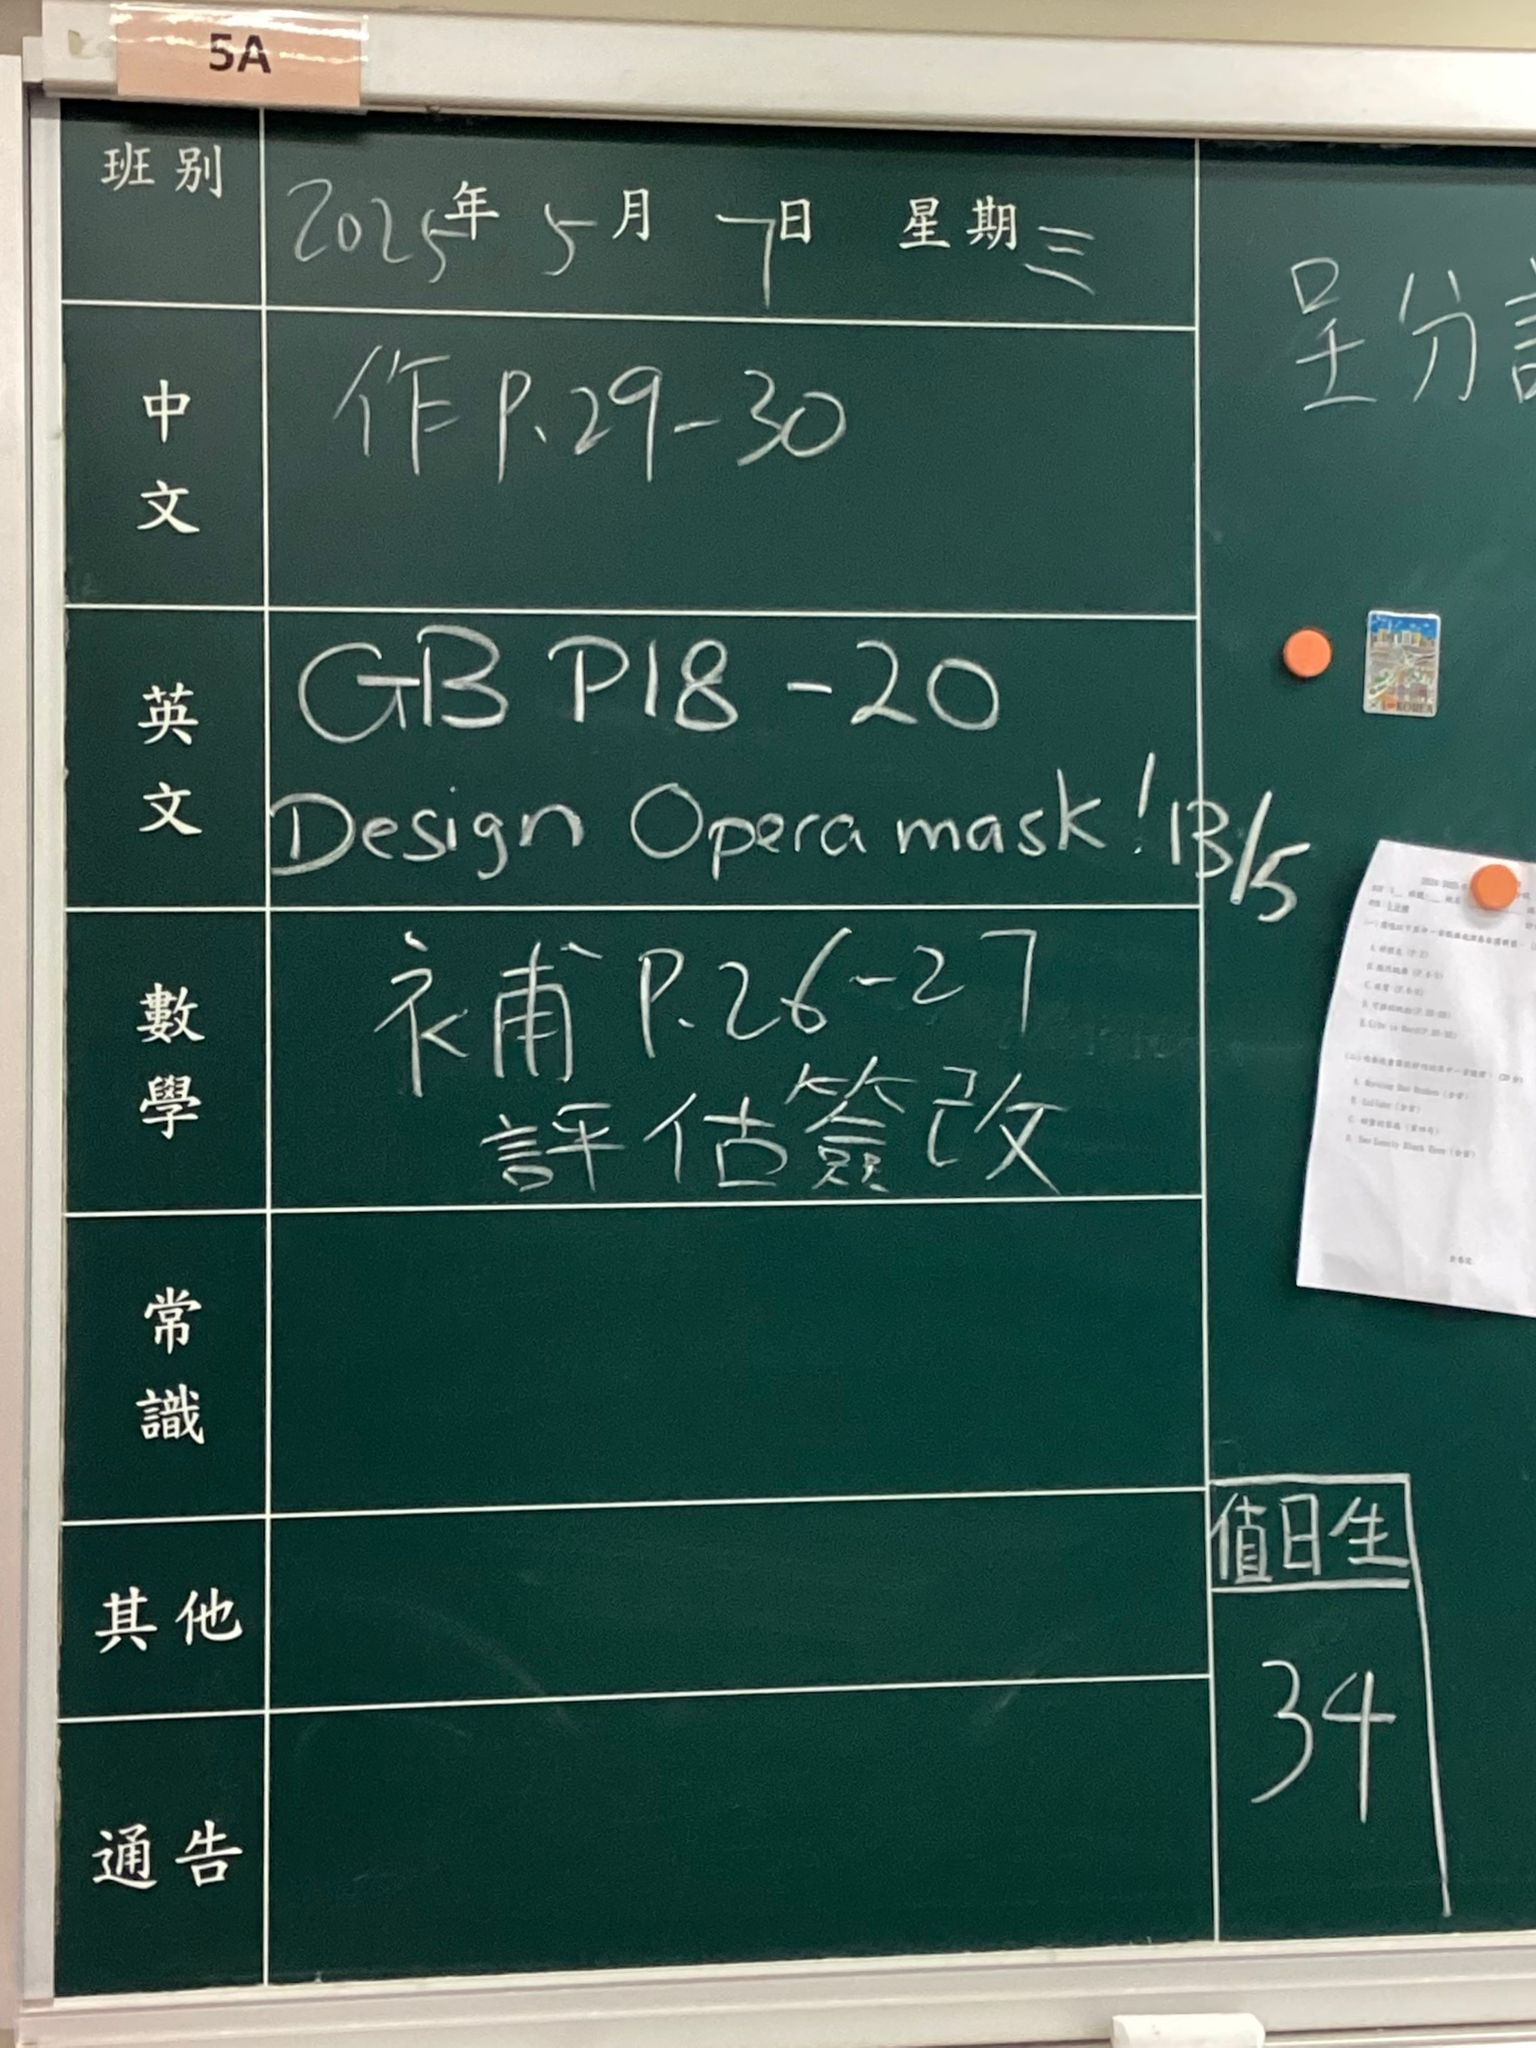 5A
班別
2025年 5月 7日 星期三
中文
作 P.29-30
英文
GB P18-20
Design Opera mask! 13/5
數學
補 P.26-27
評估簽改
常識
其他
通告
呈分
值日生
34